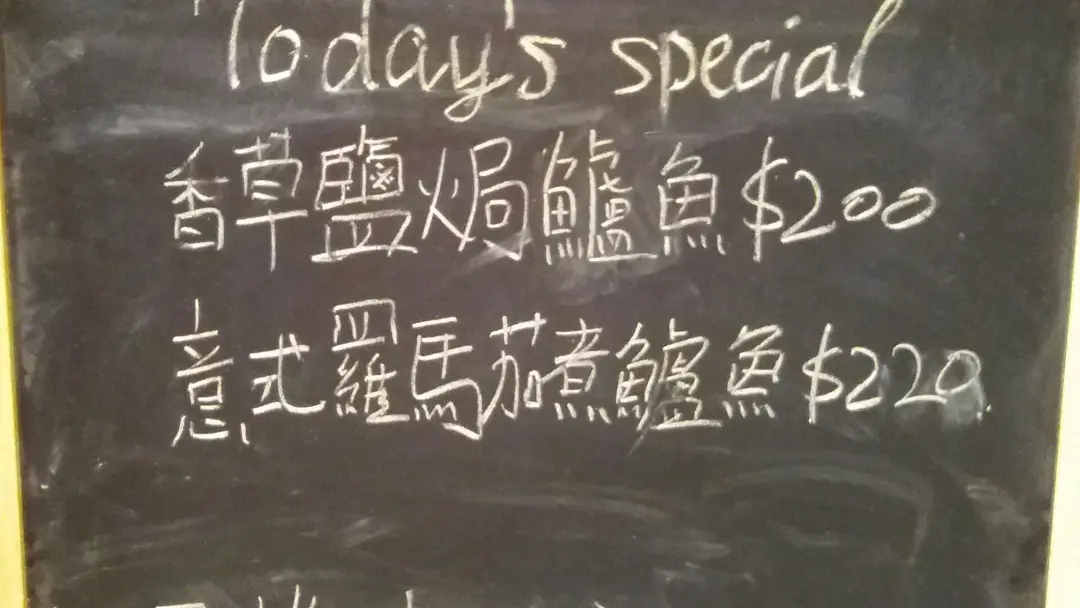 Today's special
香草鹽焗鱸魚$200
意式羅馬茄煮鱸魚$220